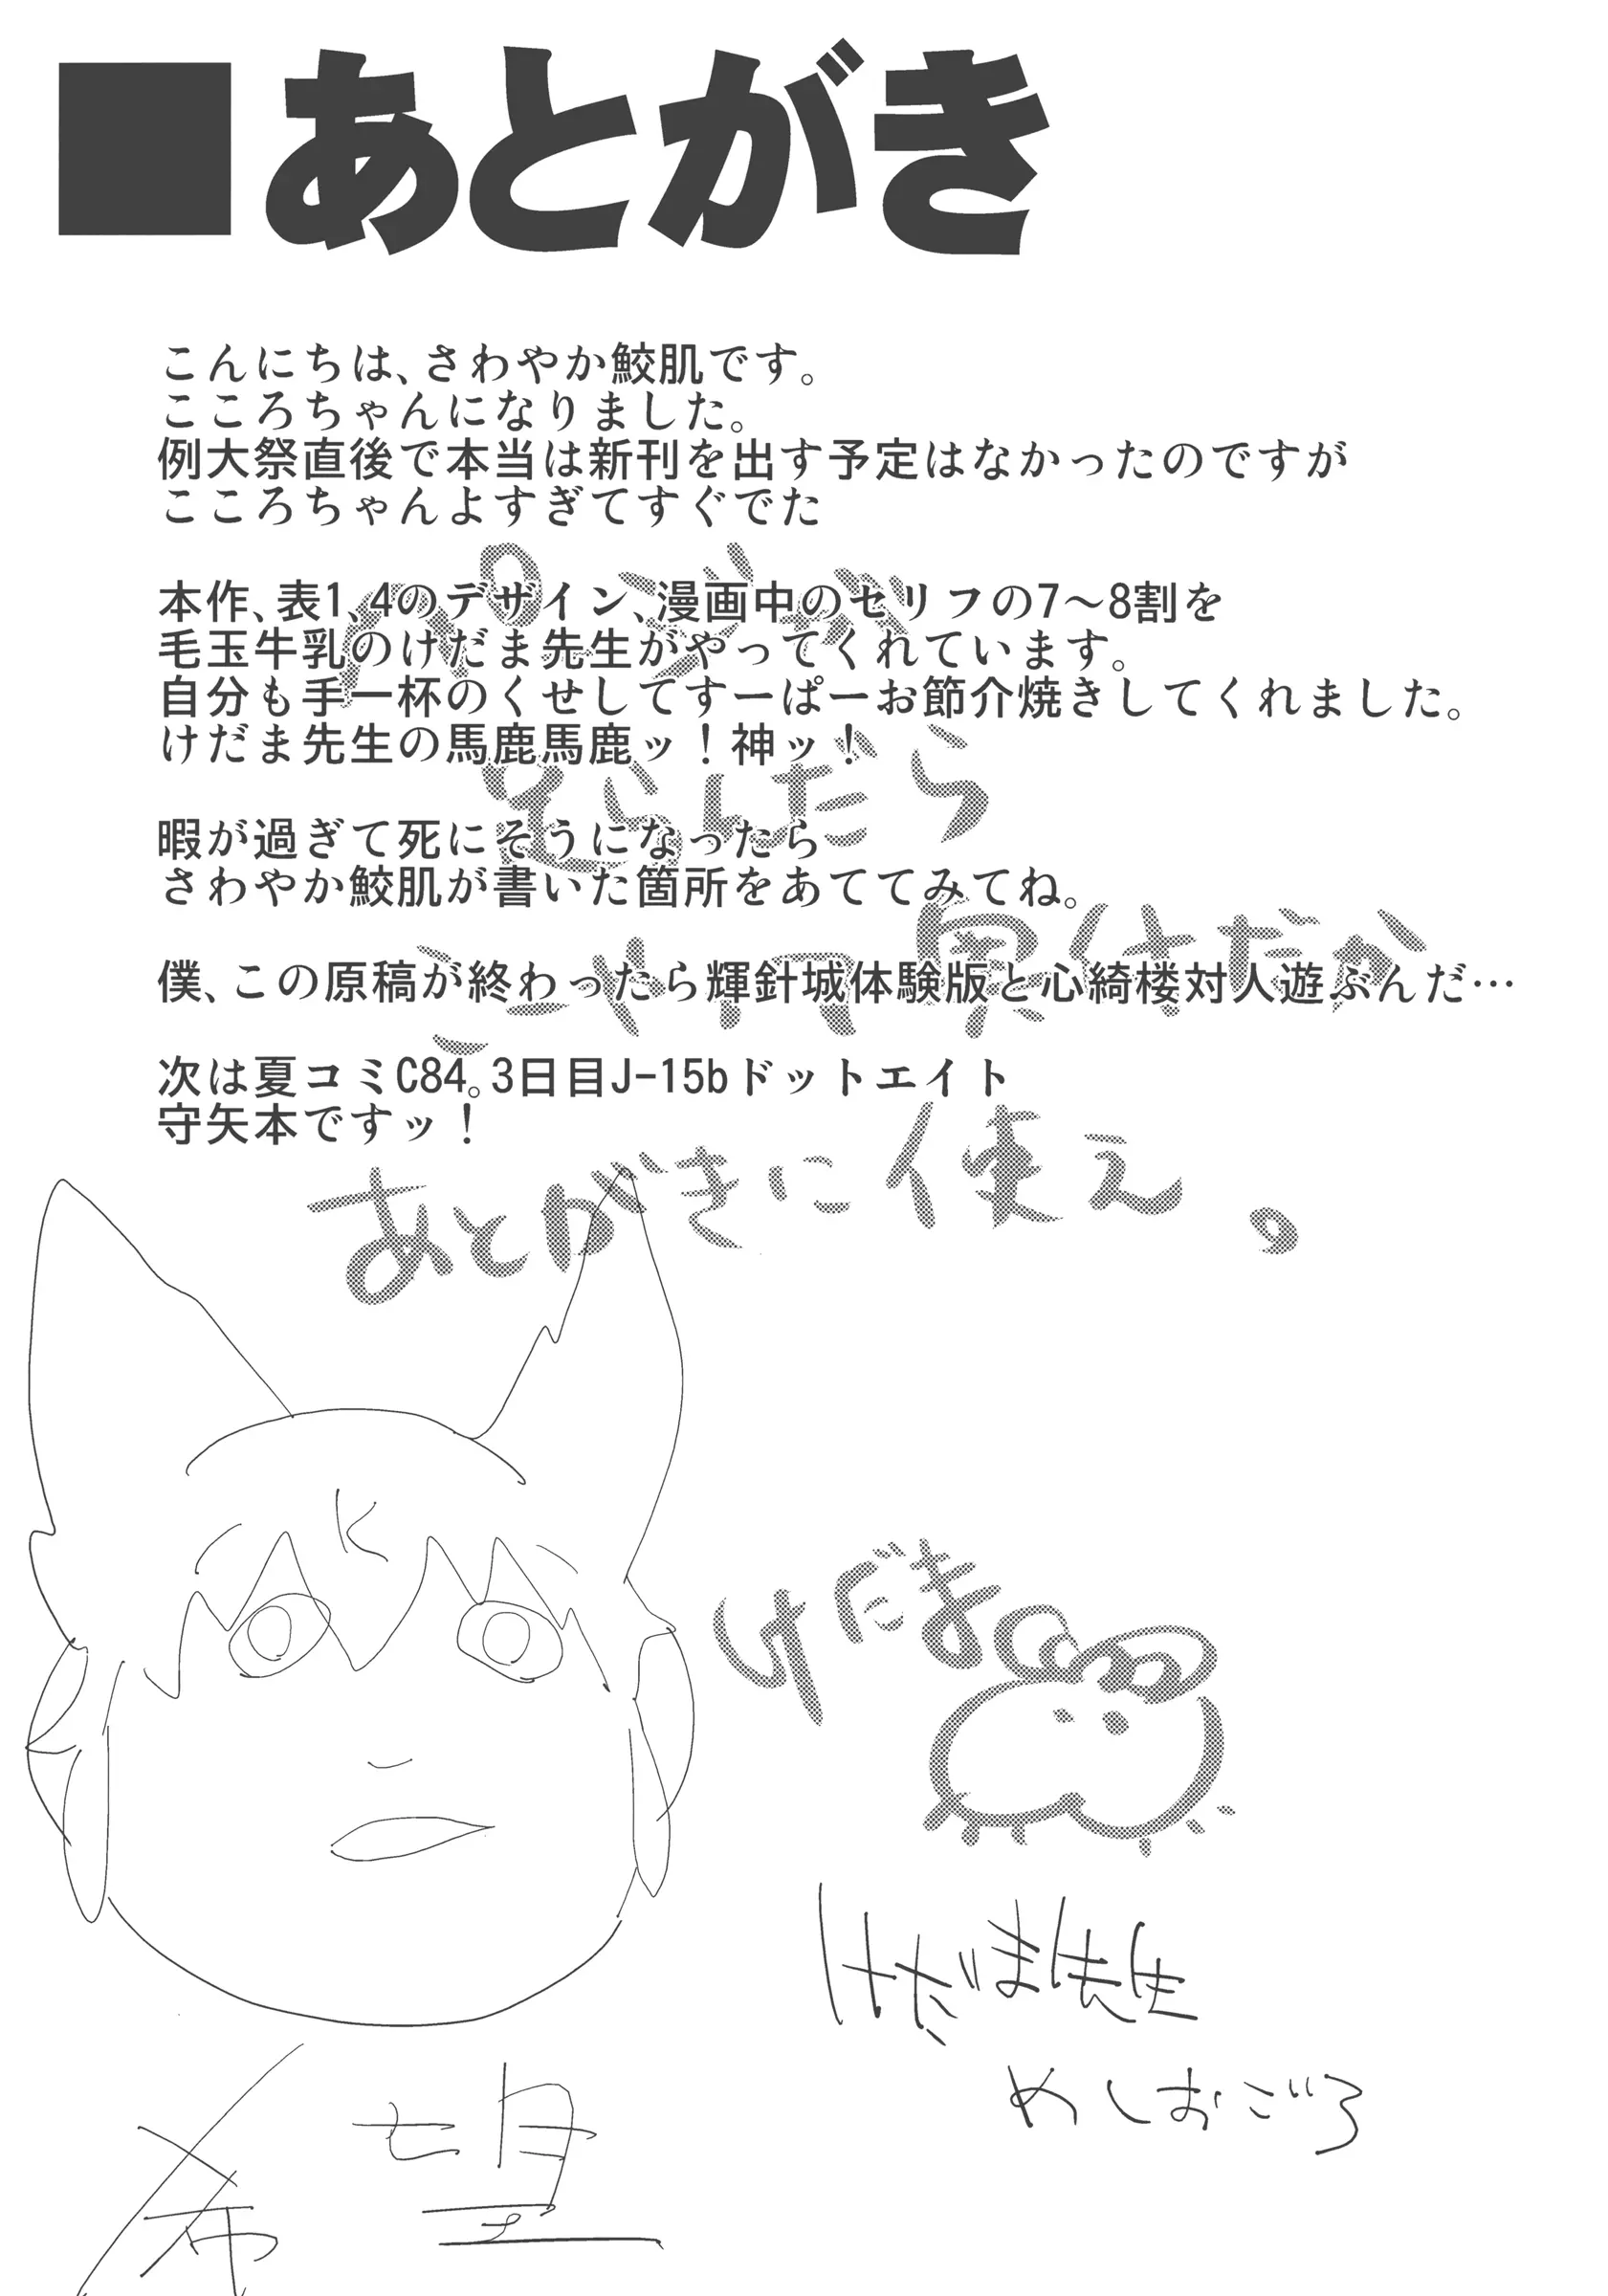 ■あとがき
こんにちは、さわやか鮫肌です。
こころちゃんになりました。
例大祭直後で本当は新刊を出す予定はなかったのですが
こころちゃんよすぎてすぐでた
本作、表1、4のデザイン、漫画中のセリフの7～8割を
毛玉牛乳のけだま先生がやってくれています。
自分も手一杯のくせしてすーぱーお節介焼きしてくれました。
けだま先生の馬鹿馬鹿ッ！神ッ！
暇が過ぎて死にそうになったら
さわやか鮫肌が書いた箇所をあててみてね。
僕、この原稿が終わったら輝針城体験版と心綺楼対人遊ぶんだ…
次は夏コミC84。3日目J-15bドットエイト
守矢本ですッ！
あとがきに使え。
けだま
けだま先生
めしおごろ
希望